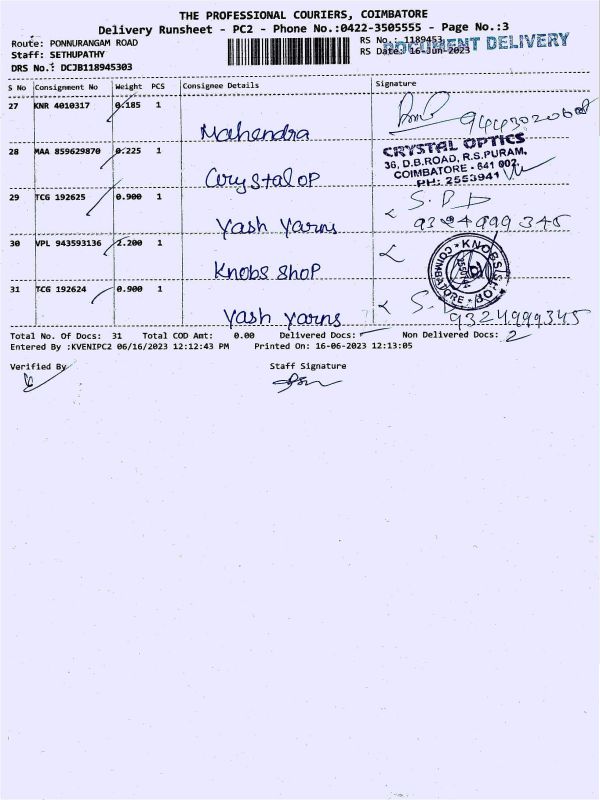 THE PROFESSIONAL COURIERS, COIMBATORE
Delivery Runsheet - PC2 - Phone No.:0422-3505555 - Page No.:3
Route: PONNURANGAM ROAD RS No.: 1189453
Staff: SETHUPATHY RS Date: 16-Jun-2023
DOCUMENT DELIVERY
DRS No.: DCJB118945303
S No Consignment No Weight PCS Consignee Details Signature
27 KNR 4010317 0.185 1
Mahendra 9443020608
28 MAA 859629870 0.225 1
CRYSTAL OPTICS
36, D.B.ROAD, R.S.PURAM,
COIMBATORE - 641 002.
PH: 2553941
Crystal op
29 TCG 192625 0.900 1
Yash Yarns 9324999345
30 VPL 943593136 2.200 1
Knobs Shop KNOBS SHOP COIMBATORE
31 TCG 192624 0.900 1
Yash Yarns 9324999345
Total No. Of Docs: 31 Total COD Amt: 0.00 Delivered Docs: Non Delivered Docs: 2
Entered By :KVENIPC2 06/16/2023 12:12:43 PM Printed On: 16-06-2023 12:13:05
Verified By Staff Signature